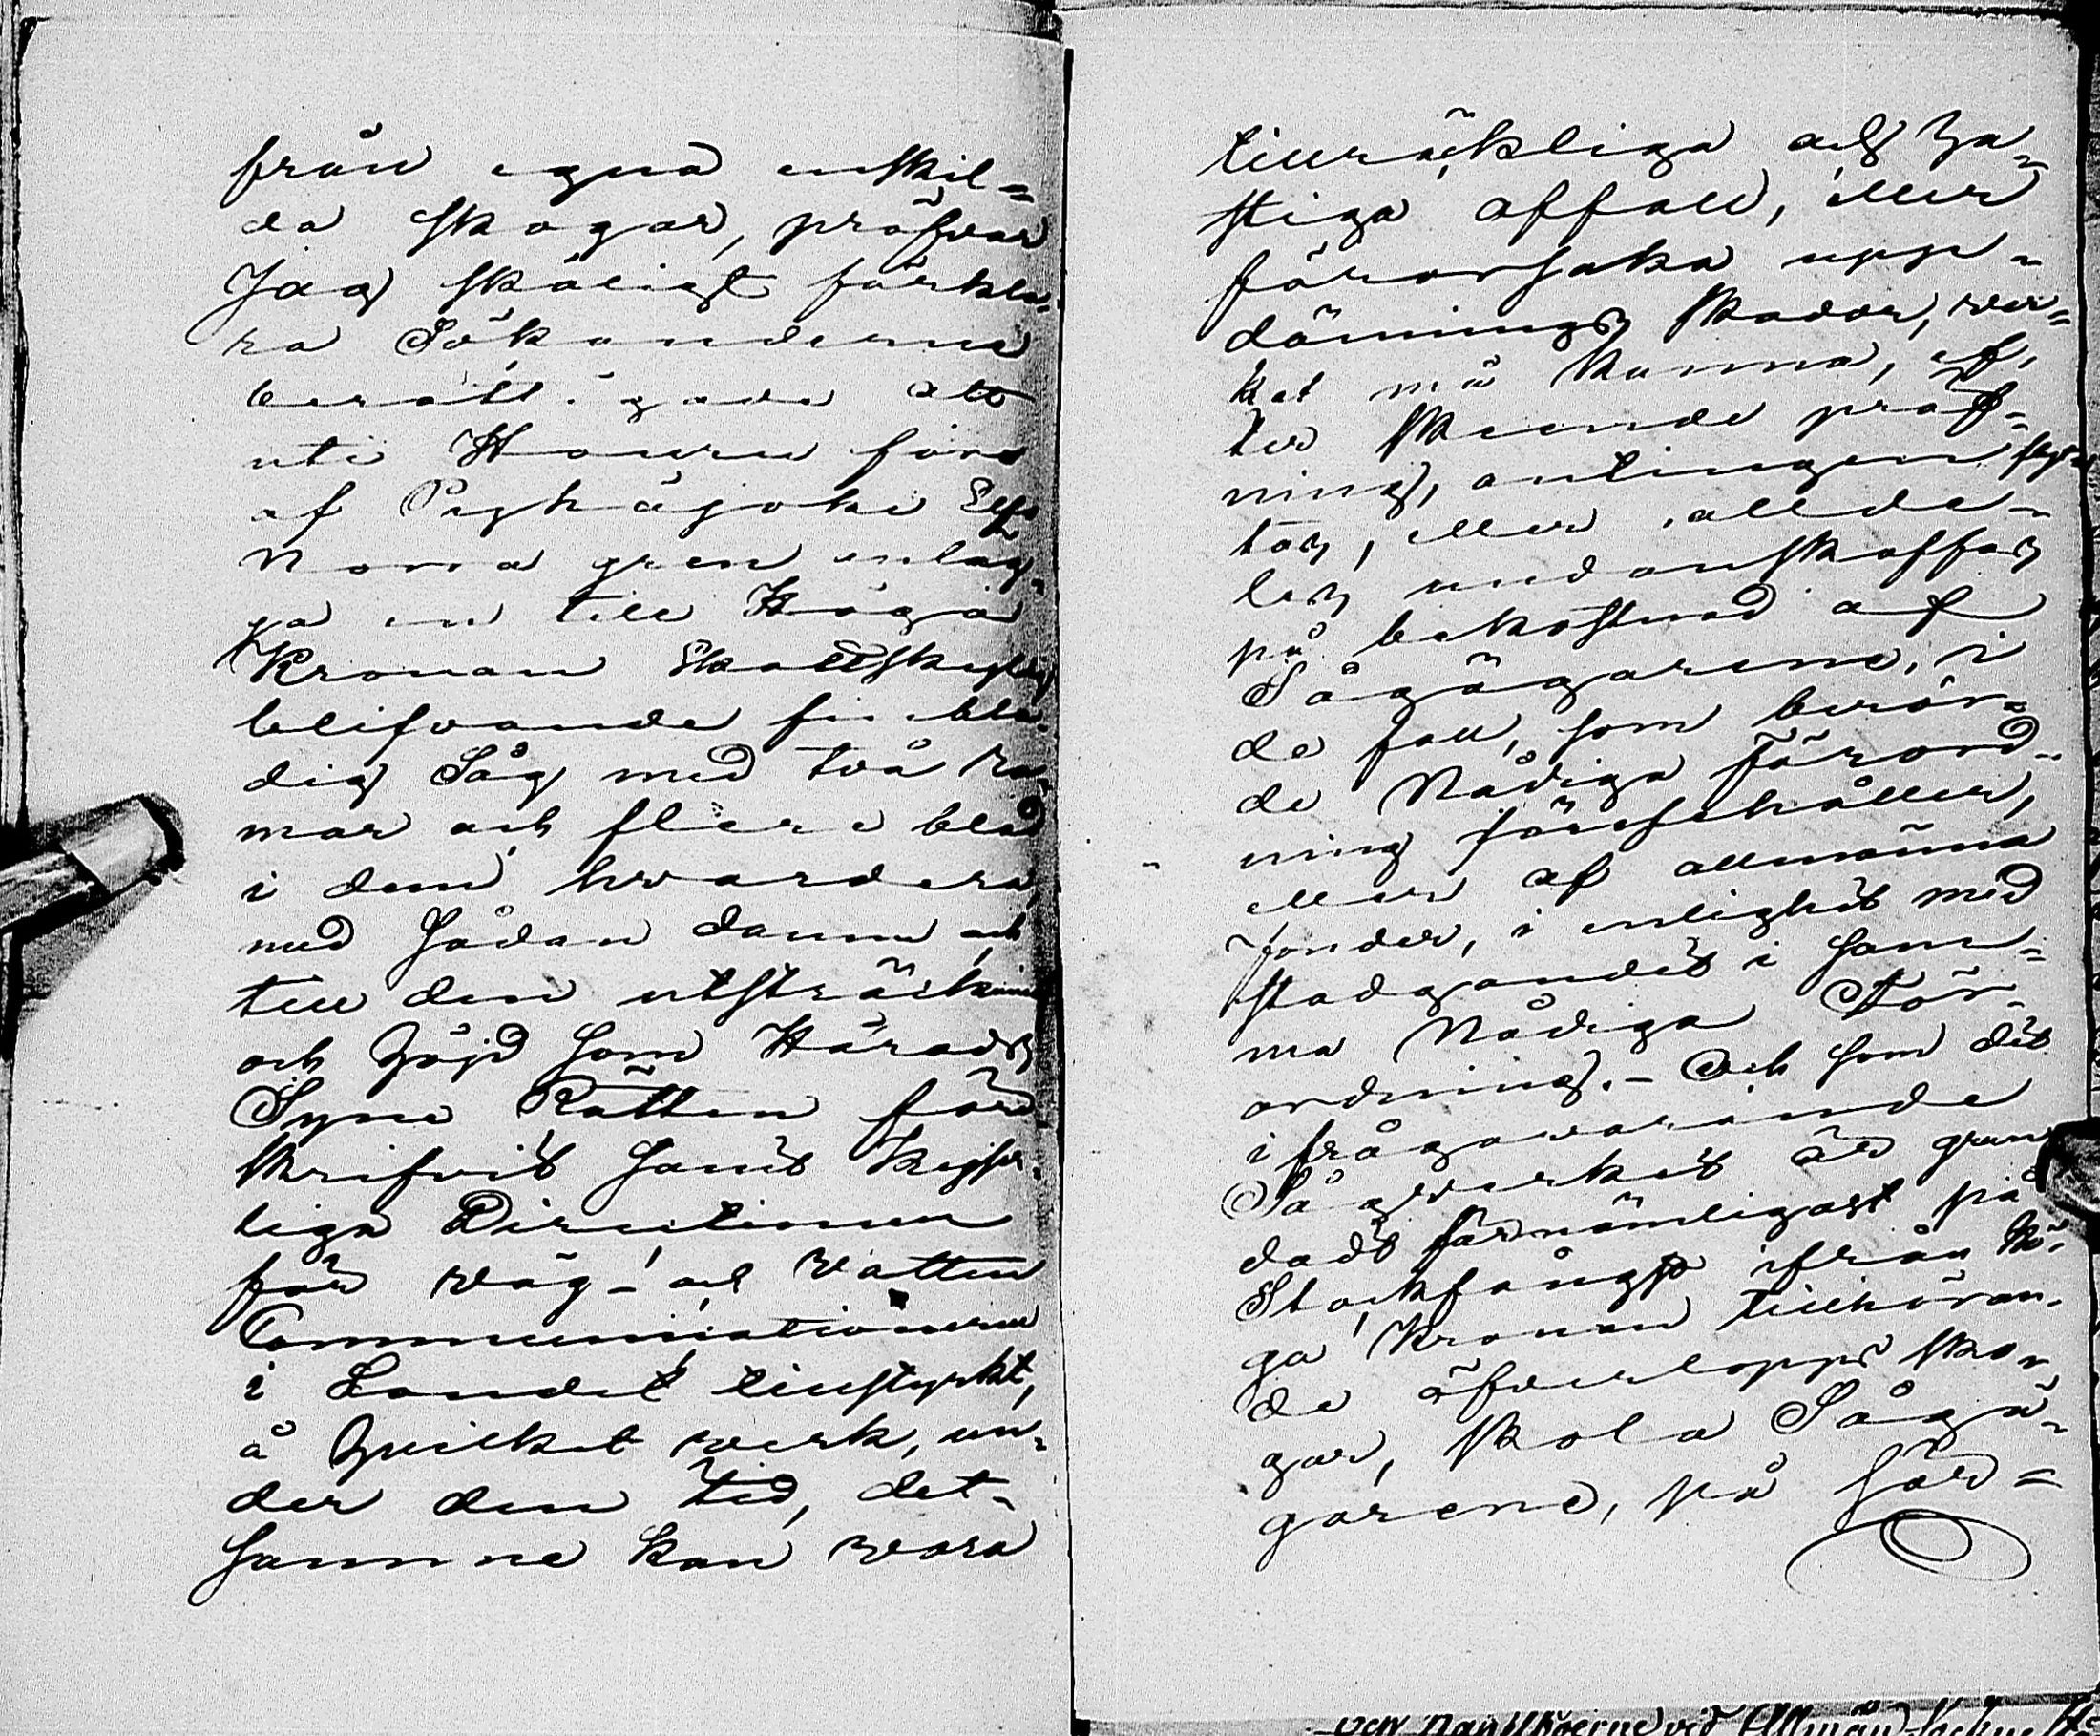 från egna enskil-
da skogar, pröfvar
Jag skäligt förkla-
ra Sökanderne
berättigade att
uti Hauru fors
af Pyhäjoki Elfs
Norra gren anläg-
ga en till Höga
Kronan Skattskyldig
blifvande finbla-
dig Såg med två ra-
mar och flere blad
i dem hvardera,
med sådan damm och
till den utsträckning
och höjd som Härads
Syne Rätten före
skrifvit samt Kejser-
liga Directionen
för väg- och Vatten
Communicationerne
i Landet tillstyrkt,
å hvilket verk, un-
der den tid, det-
samma kan vara
tillräckliga och ha-
stiga affall, eller
förorsaka upp-
dämnings skador, ver-
ket må kunna, ef-
ter skeende pröf-
ning, antingen flyt-
tas, eller allde-
les undanskaffas
på bekostnad af
Sågägarene, i
de fall, som berör-
de Nådiga Förord-
ning föreskrifver,
eller af allmänna
fonder, i enlighet med
stadgandet i sam-
ma Nådiga För-
ordning. - Och som det
ifrågavarande
Sågverket är grun-
dadt förnämligast på
Stockfångst ifrån Hö-
ga Kronan tillhöran-
de öfverlopps sko-
gar, skola Sågä-
garene, på för-
och Nämndboerne vid Allmän